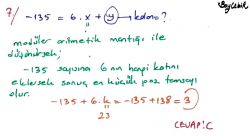 Böylebil
7/ -135 = 6.x + y → kalanı?
modüler aritmetik mantığı ile
düşünürsek;
-135 sayısına 6 nın hangi katını
eklersek sonuç en küçük poz tamsayı
olur.
-135 + 6.k = -135 + 138 = 3
23
CEVAP: C